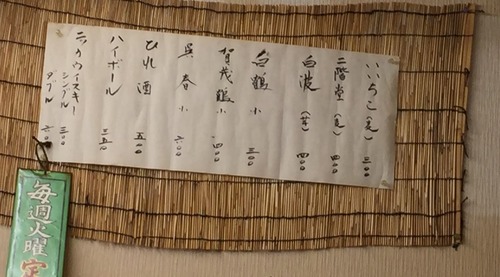 いいちこ(麦) 三〇〇
二階堂(麦) 四〇〇
白波(芋) 四〇〇
白鶴 小 三〇〇
賀茂鶴 小 四〇〇
呉春 小 六〇〇
ひれ酒 五〇〇
ハイボール 三五〇
ニッカウイスキー
シングル 三〇〇
ダブル 六〇〇
毎週火曜定